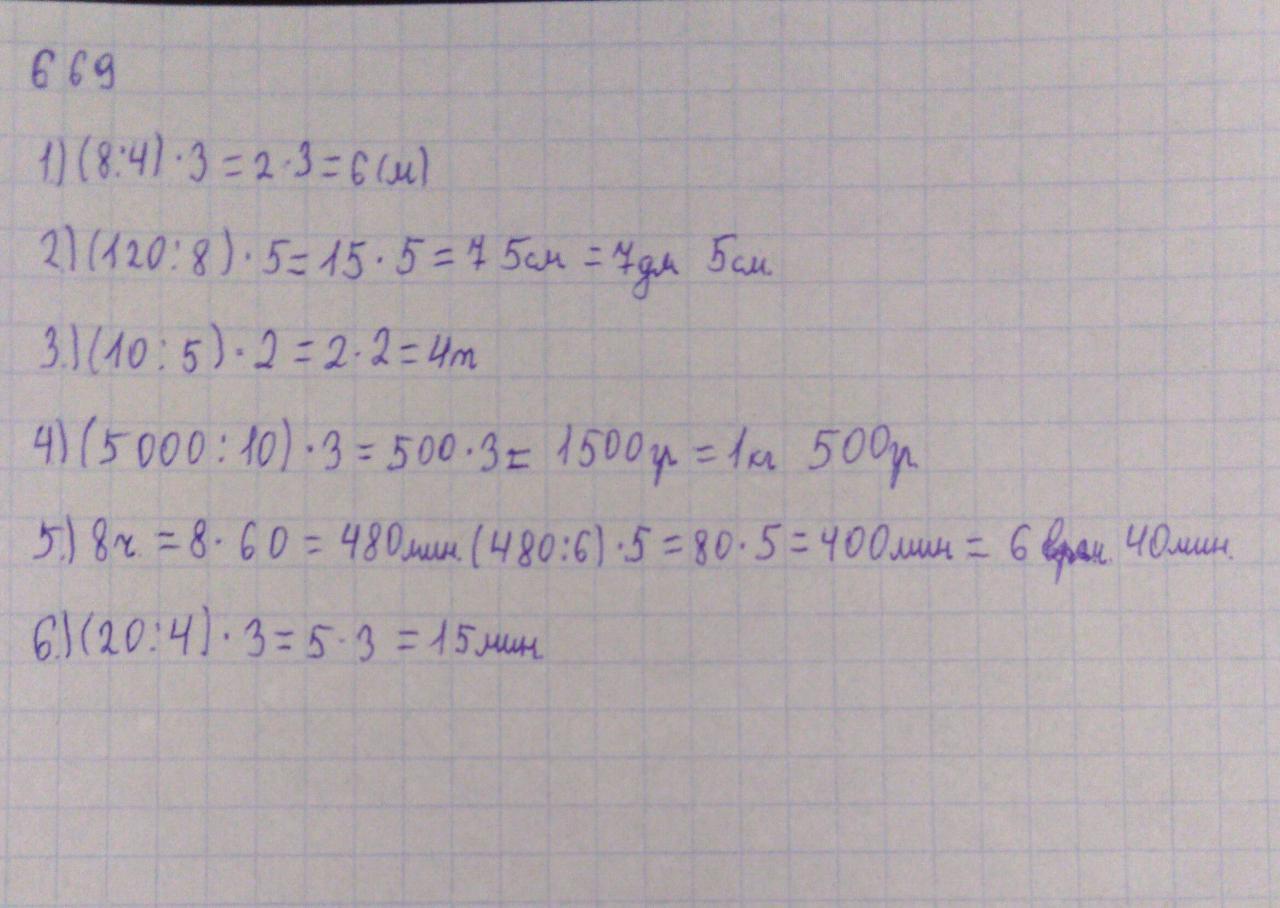 669
1) (8:4)·3=2·3=6(м)
2) (120:8)·5=15·5=75см=7дм 5см
3.) (10:5)·2=2·2=4т
4) (5000:10)·3=500·3= 1500гр=1кг 500гр
5.) 8ч.=8·60=480мин.(480:6)·5=80·5=400мин= 6 40мин.
6.) (20:4)·3=5·3=15мин